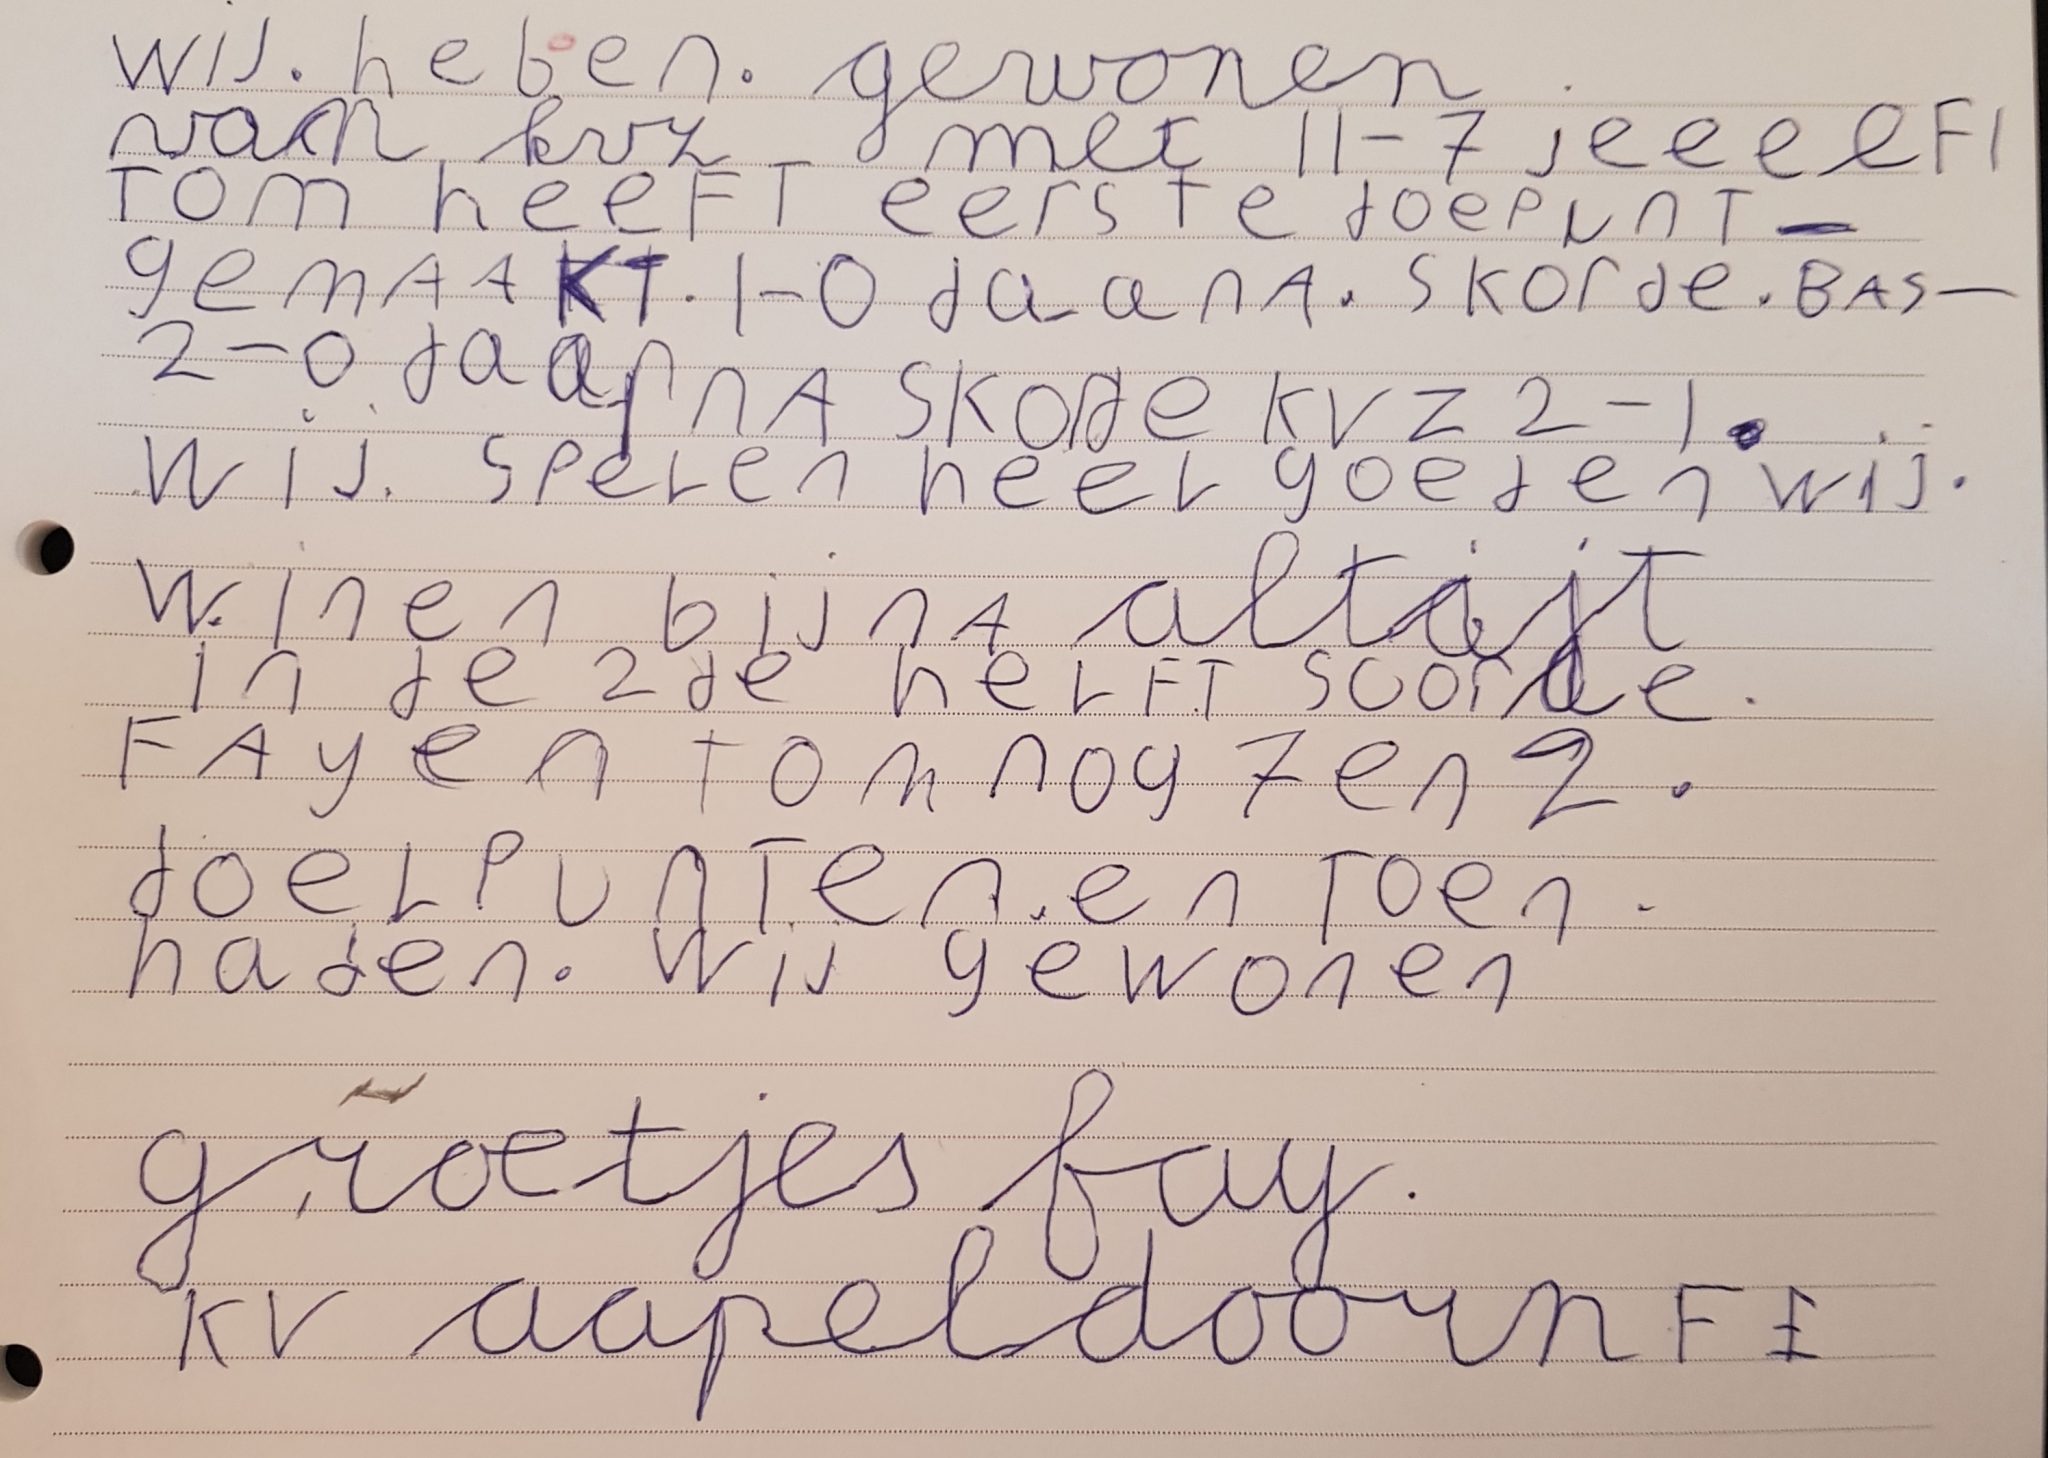 wij. heben. gewonen.
van kvz met 11-7 jeeeeF1
TOM heeFT eersTe doepunT-
gemAAKT. 1-0 daanA. SKorde. BAS-
2-0 daarnA SKorde KVZ 2-1.
wij. sperer heer goed en wij.
winen bijnA altijt
in de 2de herFT scorde.
FAy en Tom nog 7 en 2.
doerpunTen. en Toen.
haden. wij gewonen
groetjes fay.
KV aapeldoorn F1